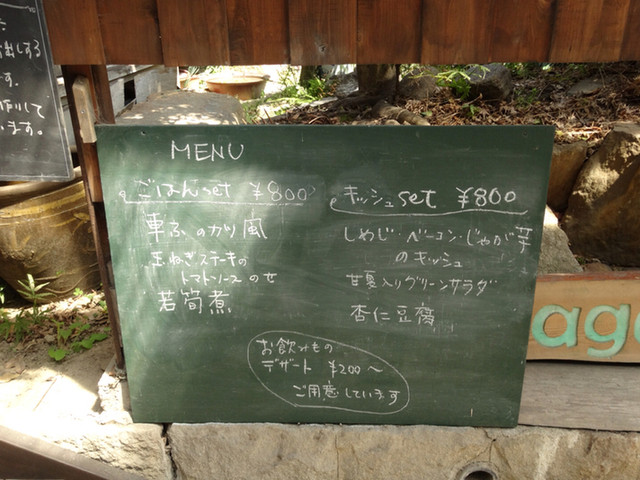 お出しする
す。
います。
MENU
ごはんset ¥800
車ふのカツ風
玉ねぎステーキの
トマトソースのせ
若筍煮
キッシュset ¥800
しめじ・ベーコン・じゃが芋
のキッシュ
甘夏入りグリーンサラダ
杏仁豆腐
お飲みもの
デザート ¥200〜
ご用意しています
age